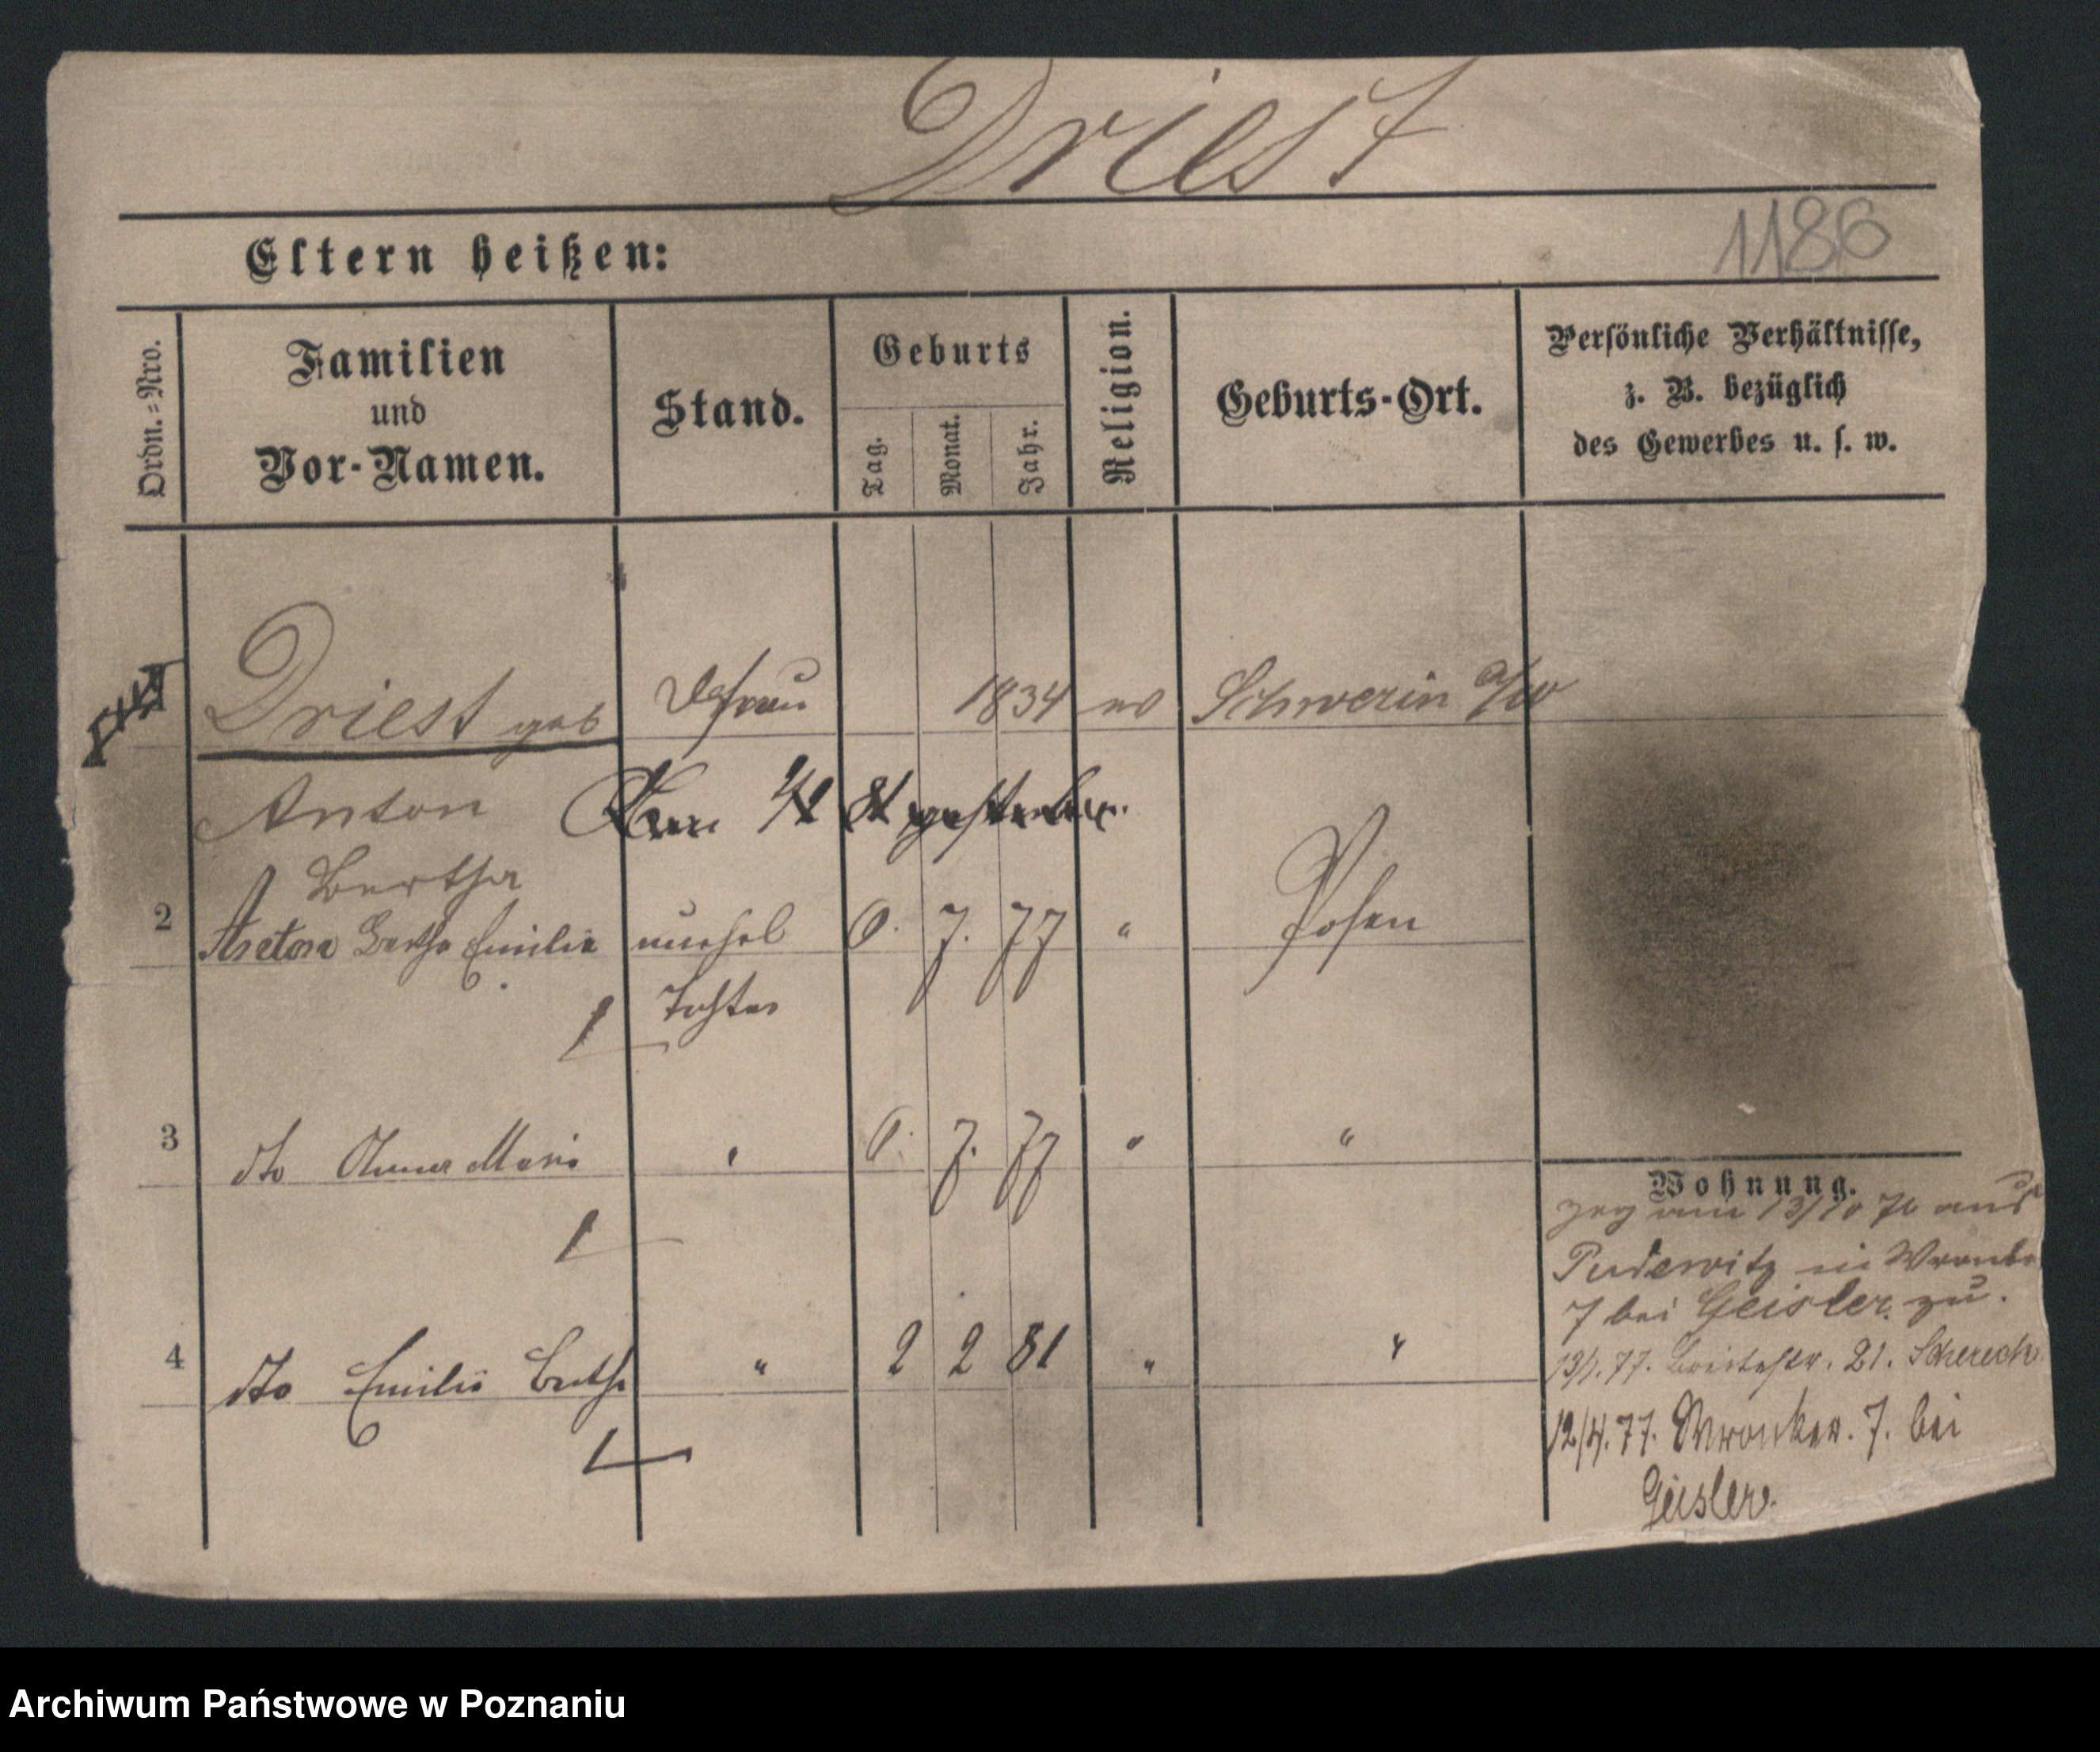 Driest
1186
Eltern heißen:
Ordn.=Nro.
Familien
und
Vor-Namen.
Stand.
Geburts
Tag.
Monat.
Jahr.
Religion.
Geburts-Ort.
Persönliche Verhältnisse,
z. B. bezüglich
des Gewerbes u. s. w.
Driest geb
1834
Schwerin a/W
Anton
gestorben.
Bertha
2
Bertha Emilie
unehel
6. 7. 77 "
Posen
Tochter
3
dto Anna Marie
6. 7. 77 " "
4
dto Emilie Bertha " 2 2 81 " "
Wohnung.
zog am 13/10 76 aus
Pudewitz in
7 bei Geisler zu.
13/1.77. Breitestr. 21.
12/4.77. Wronker. 7. bei
Geisler.
Archiwum Państwowe w Poznaniu